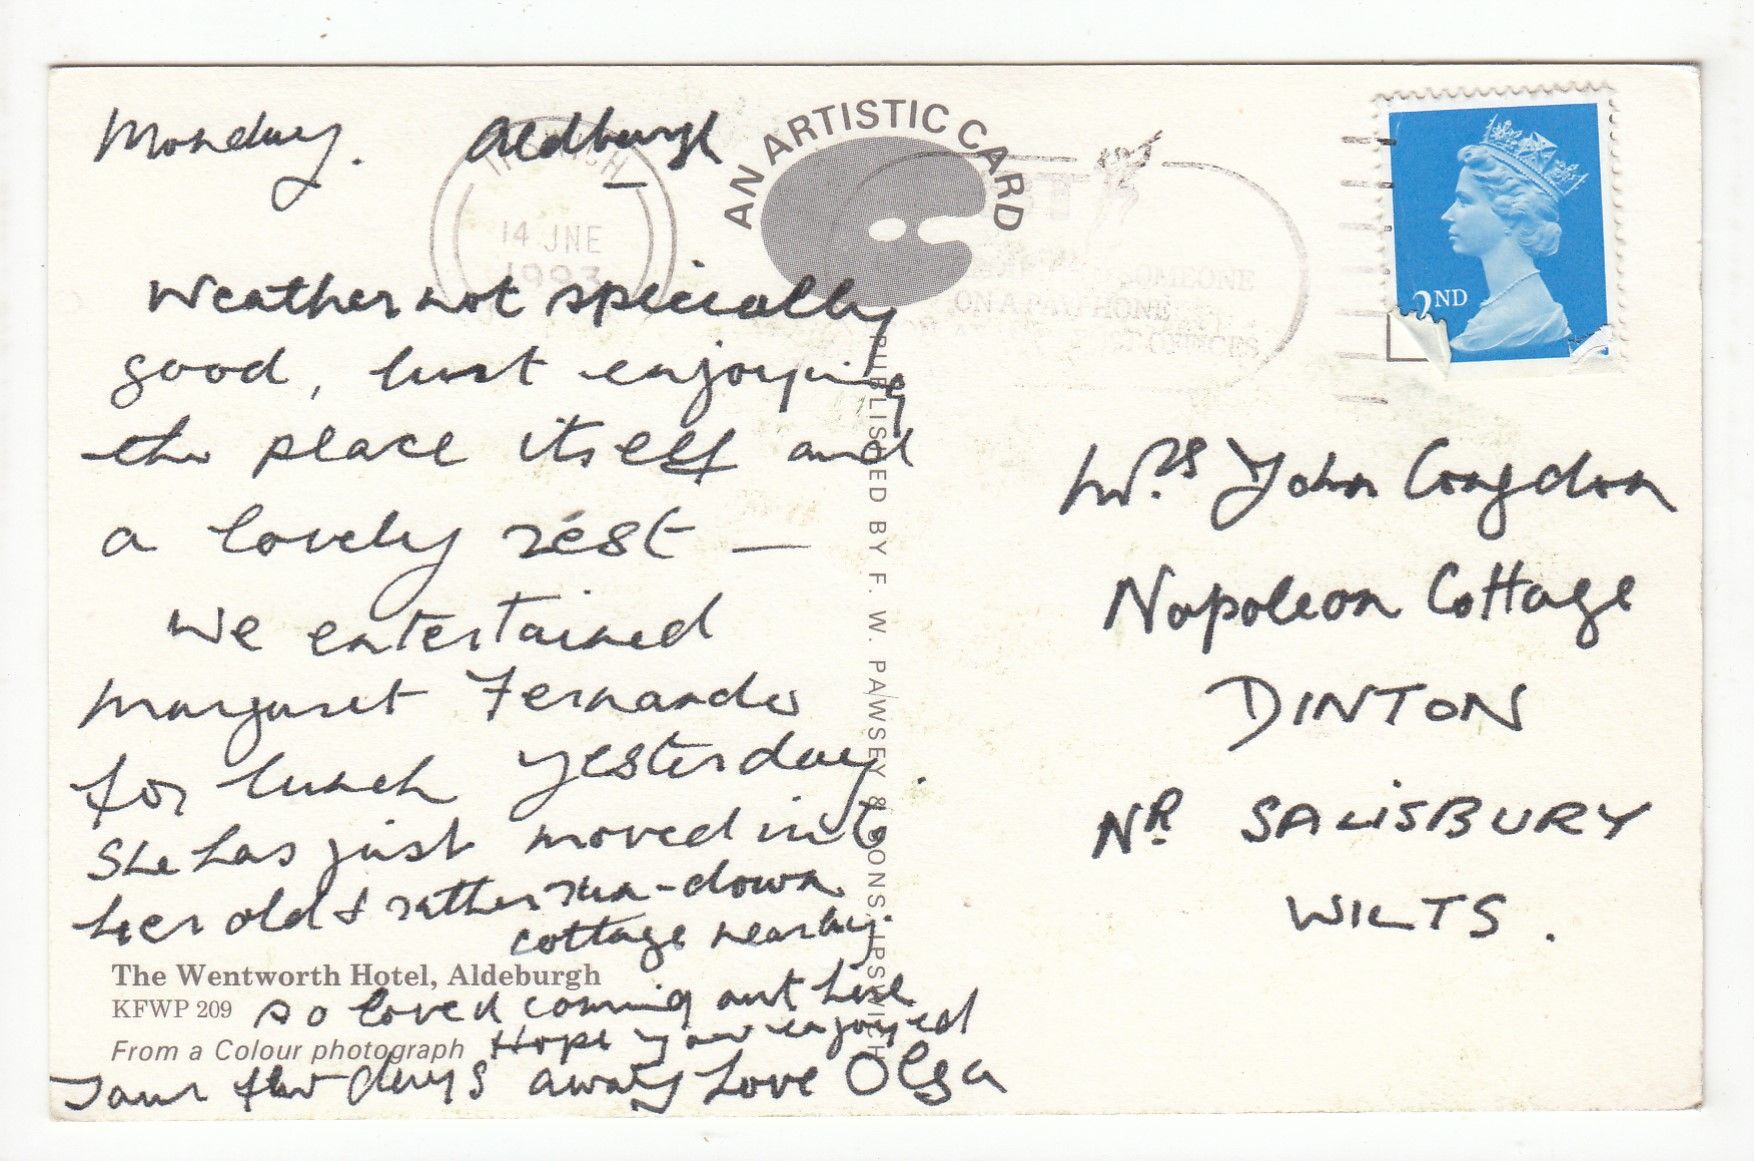 Monday. Aldburgh
Weather not specially
good, but enjoying
the place itself and
a lovely rest —
We entertained
Margaret Fernando
for lunch yesterday.
She has just moved into
her old & rather run-down
cottage nearby.
so loved coming out here
Hope you enjoyed
your few days away Love Olga
The Wentworth Hotel, Aldeburgh
KFWP 209
From a Colour photograph
AN ARTISTIC CARD
PUBLISHED BY F. W. PAWSEY & SONS, IPSWICH
14 JNE
1993
SOMEONE
ON A PAYPHONE
2ND
Mrs John Congdon
Napoleon Cottage
DINTON
NR SALISBURY
WILTS.